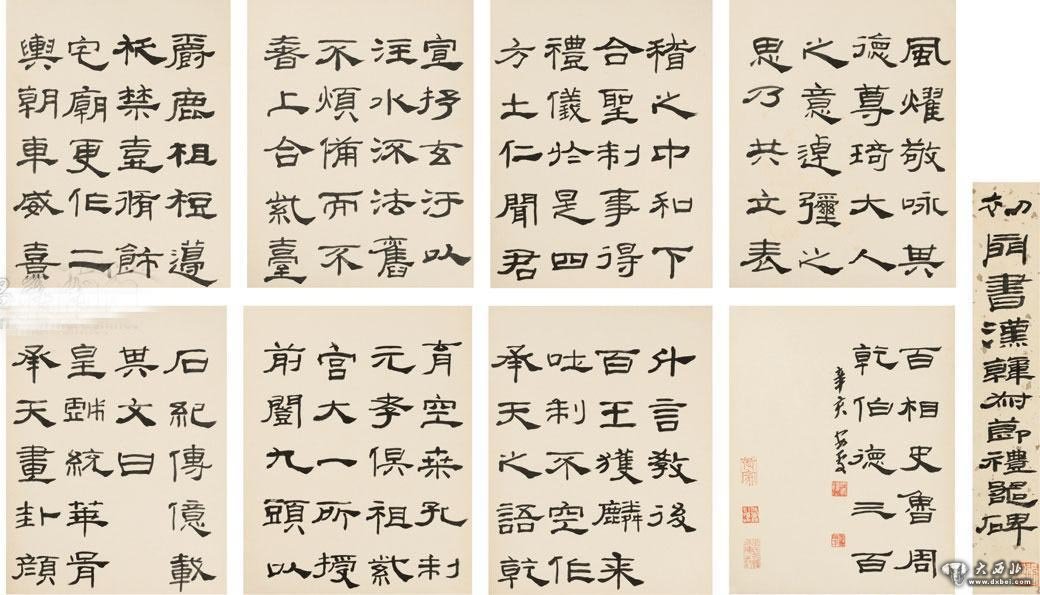 書漢韓勑節禮器碑
爵鹿柤梪籩
柉禁壺脩飾
宅廟更作二
輿朝車威熹
宣抒玄汙以
注水流法舊
不煩備而不
奢上合紫臺
稽之中和下
合聖制事得
禮儀於是四
方士仁聞君
風燿敬咏其
德尊琦大人
之意逴彌之
思乃共立表
石紀傳億載
其文曰
皇戲統華胥
承天畫卦顏
育空桑孔制
元孝俱祖紫
宮大一所授
前闓九頭以
什言教後
百王獲麟來
吐制不空作
承天之語乾
百相史魯周
乾伯德三百
辛亥
大西北
www.dxbei.com